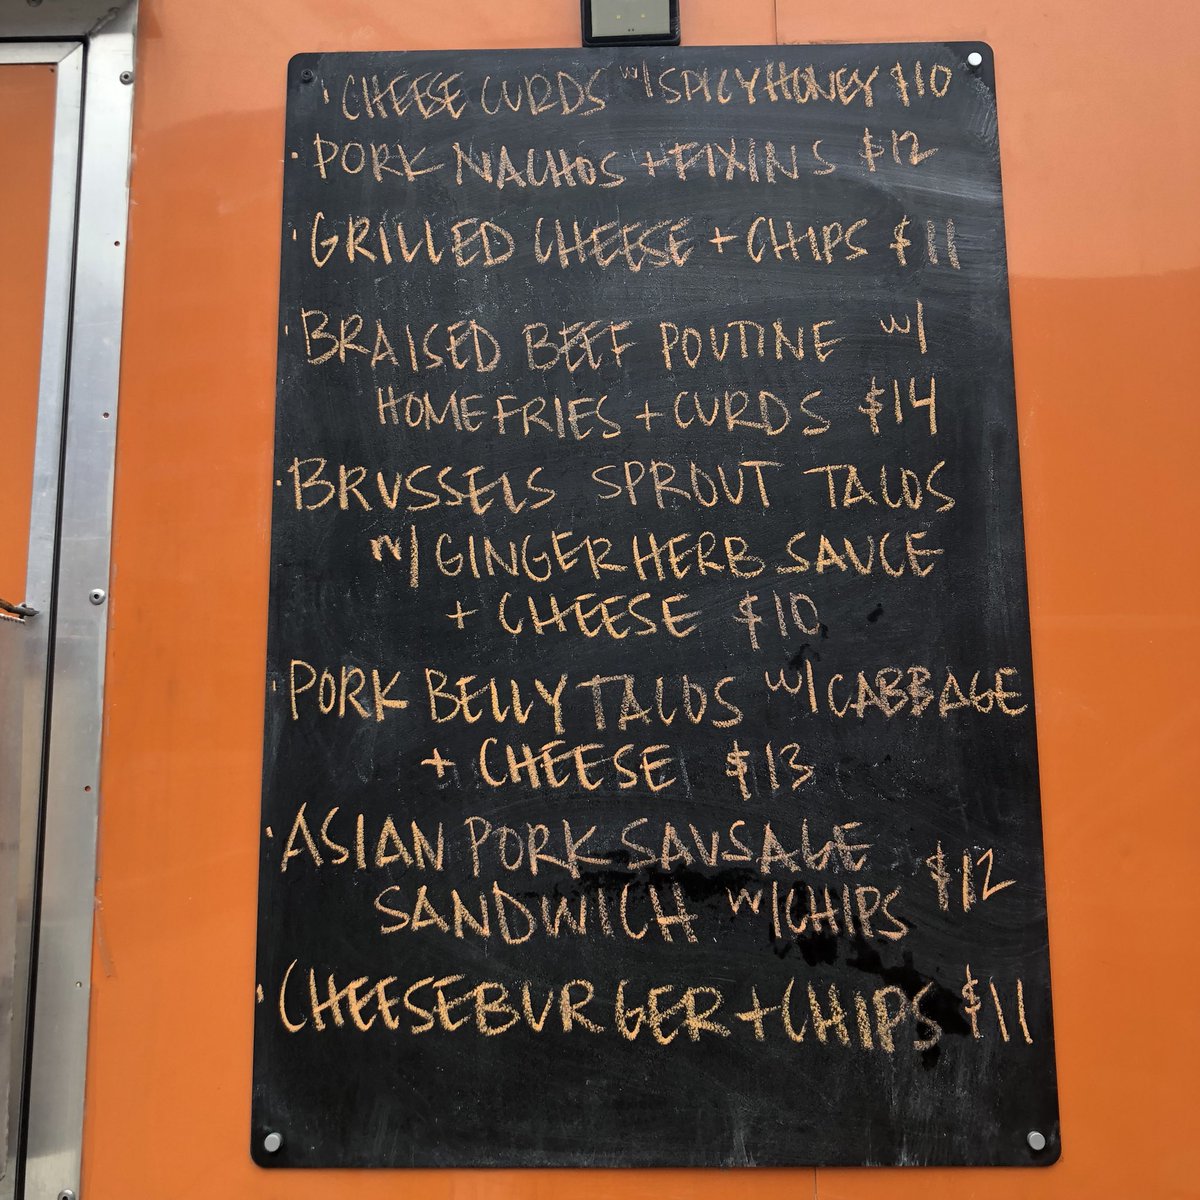 · CHEESE CURDS w/ SPICY HONEY $10
· PORK NACHOS + FIXINS $12
· GRILLED CHEESE + CHIPS $11
· BRAISED BEEF POUTINE w/
HOMEFRIES + CURDS $14
· BRUSSELS SPROUT TACOS
w/ GINGER HERB SAUCE
+ CHEESE $10
· PORK BELLY TACOS w/ CABBAGE
+ CHEESE $13
· ASIAN PORK SAUSAGE
SANDWICH w/ CHIPS $12
· CHEESEBURGER + CHIPS $11